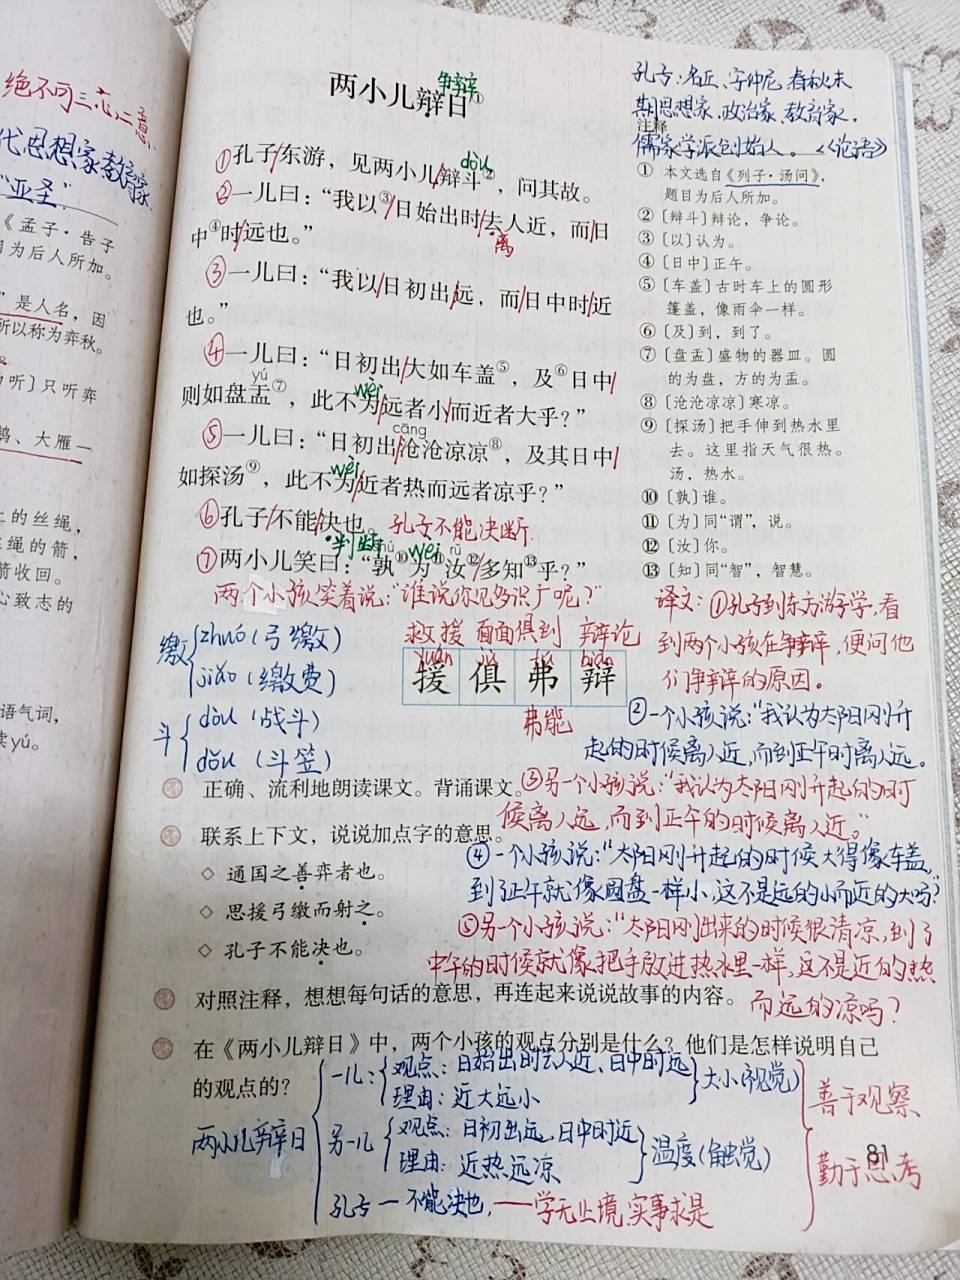 绝不可三心二意
代思想家教育家
"亚圣"
《孟子·告子
目为后人所加。
"是人名，因
所以称为弈秋。
听〕只听弈
鹄、大雁一
上的丝绳，
丝绳的箭，
箭收回。
心致志的
语气词，
读yú。
争辩
两小儿辩日①
dòu
①孔子/东游，见两小儿/辩斗②，问其故。
②一儿曰："我以③/日始出时/去人近，而/日
离
中④时/远也。"
③一儿曰："我以/日初出/远，而/日中时/近
也。"
④一儿曰："日初出/大如车盖⑤，及⑥日中/
yú
wèi
则如盘盂⑦，此不为/远者小/而近者大乎？"
cāng
⑤一儿曰："日初出/沧沧凉凉⑧，及其日中/
wèi
如探汤⑨，此不为/近者热而远者凉乎？"
⑥孔子/不能/决也。孔子不能决断
判断
wéi rǔ
⑦两小儿笑曰："孰⑩为⑪汝⑫/多知⑬乎？"
两个小孩笑着说："谁说你见多识广呢？"
孔子：名丘、字仲尼，春秋末
期思想家、政治家、教育家，
儒家学派创始人。《论语》
注释
① 本文选自《列子·汤问》，
题目为后人所加。
②〔辩斗〕辩论，争论。
③〔以〕认为。
④〔日中〕正午。
⑤〔车盖〕古时车上的圆形
篷盖，像雨伞一样。
⑥〔及〕到，到了。
⑦〔盘盂〕盛物的器皿。圆
的为盘，方的为盂。
⑧〔沧沧凉凉〕寒凉。
⑨〔探汤〕把手伸到热水里
去。这里指天气很热。
汤，热水。
⑩〔孰〕谁。
⑪〔为〕同"谓"，说。
⑫〔汝〕你。
⑬〔知〕同"智"，智慧。
缴
zhuó（弓缴）
jiǎo（缴费）
斗
dòu（战斗）
dǒu（斗笠）
救援 面面俱到 辩论
yuán jù fú biàn
援俱弗辩
弗能
译文：①孔子到东方游学，看
到两个小孩在争辩，便问他
们争辩的原因。
②一个小孩说："我认为太阳刚升
起的时候离人近，而到正午时离人远。
③另一个小孩说："我认为太阳刚升起的时
候离人远，而到正午的时候离人近。"
④一个小孩说："太阳刚升起的时候大得像车盖，
到了正午就像圆盘一样小，这不是远的小而近的大吗？
⑤另一个小孩说："太阳刚出来的时候很清凉，到了
中午的时候就像把手放进热水里一样，这不是近的热
而远的凉吗？
正确、流利地朗读课文。背诵课文。
联系上下文，说说加点字的意思。
◇ 通国之善弈者也。
◇ 思援弓缴而射之。
◇ 孔子不能决也。
对照注释，想想每句话的意思，再连起来说说故事的内容。
在《两小儿辩日》中，两个小孩的观点分别是什么？他们是怎样说明自己
的观点的？
两小儿辩日
一儿：
观点：日始出时去人近、日中时远
理由：近大远小
大小（视觉）
另一儿
观点：日初出远，日中时近
理由：近热远凉
温度（触觉）
孔子—不能决也，——学无止境，实事求是
善于观察
勤于思考
81